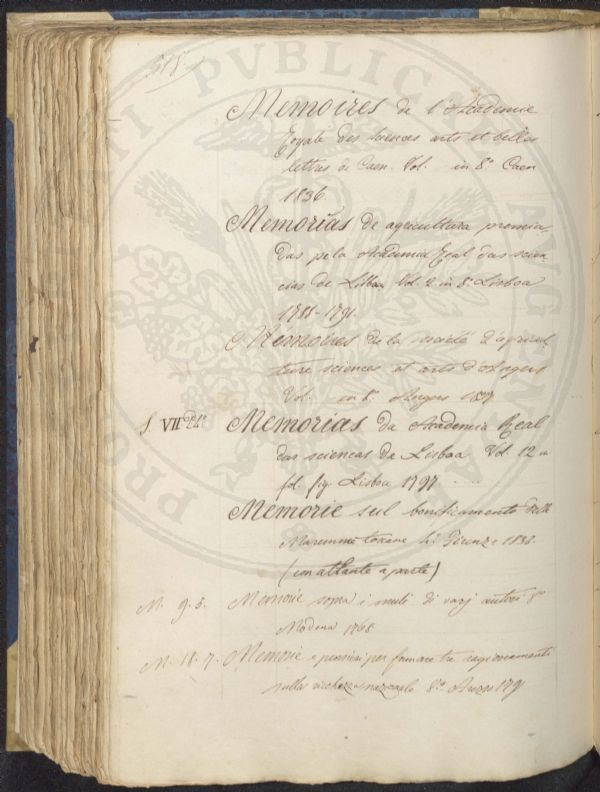 318.
Memoires de l'Academie
Royale des sciences arts et belles
lettres de Caen. Vol. in 8.º Caen
1836.
Memorias de agricultura premia-
das pela Academia Real das scien
cias de Lisboa Vol. 2. in 8.º Lisboa
1788-1791.
Mémoires de la société d'agricul
ture sciences et arts d'Angers
Vol. in 8.º Angers
S. VII Memorias da Academia Real
das sciencas da Lisboa Vol. 12 in
fol. fig. Lisboa 1797
Memorie sul bonificamento delle
Maremme toscane Firenze 1838.
(con atlante a parte)
M. 9. 3. Memorie sopra i muli di varj autori 8º
Modena 1768
M. 18. 7. Memorie e pensieri per formare tre ragionamenti
sulla nazionale 8.º Arezzo
PROVIDENTIA PUBLICAE AUGENDAE